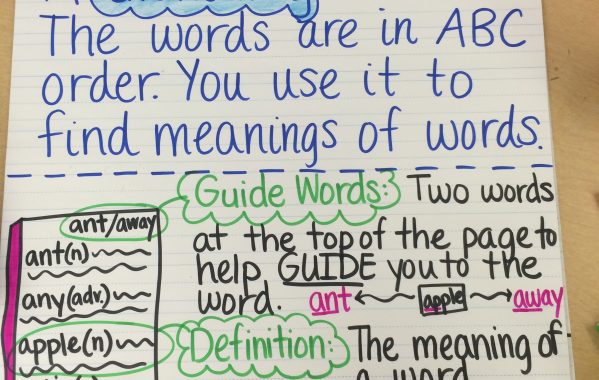 The words are in ABC
order. You use it to
find meanings of words.
Guide Words: Two words
at the top of the page to
help GUIDE you to the
word. ant apple away
ant/away
ant(n)
any(adv.)
apple(n)
Definition: The meaning of
a word